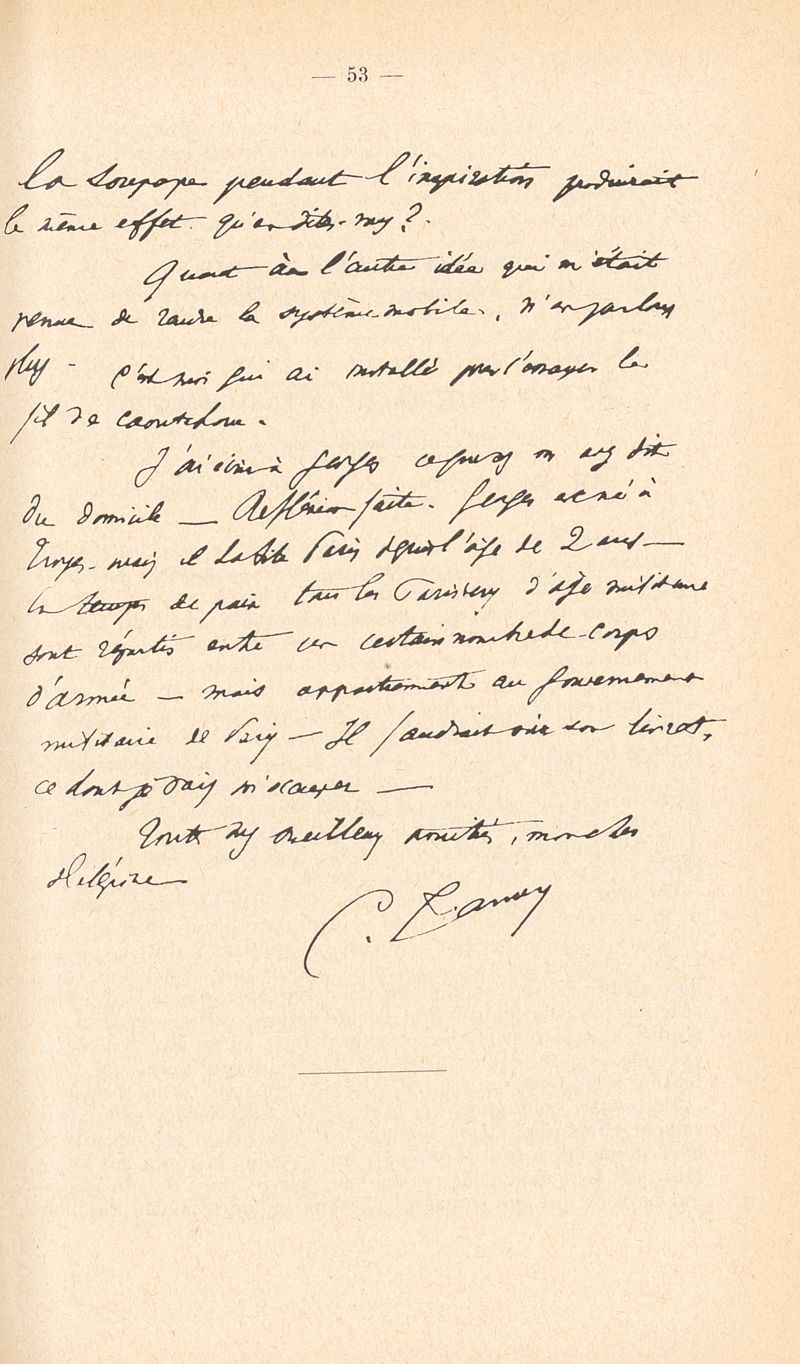 — 53 —
la soupape pendant l'inspiration produirait
le même effet. qu'en dites-vous?
Quant à l'autre idée qui m'était
venue de rendre le système mobile, n'en parlons
plus - c'est moi qui ai installé pour l'essayer le
fil de caoutchouc.
J'ai écrit à Georges ce que vous m'avez dit
du domicile — Réflexion faite. Georges est né à
Troyes. mais il habite Paris depuis l'âge de 2 ans —
En temps de paix tous les Parisiens d'âge militaire
sont répartis entre un certain nombre de corps
d'armée — mais appartiennent au Gouvernement
militaire de Paris — Il faudrait voir son livret,
ce dont je vais m'occuper —
Toutes mes meilleures amitiés, mon cher
Delépine
C.